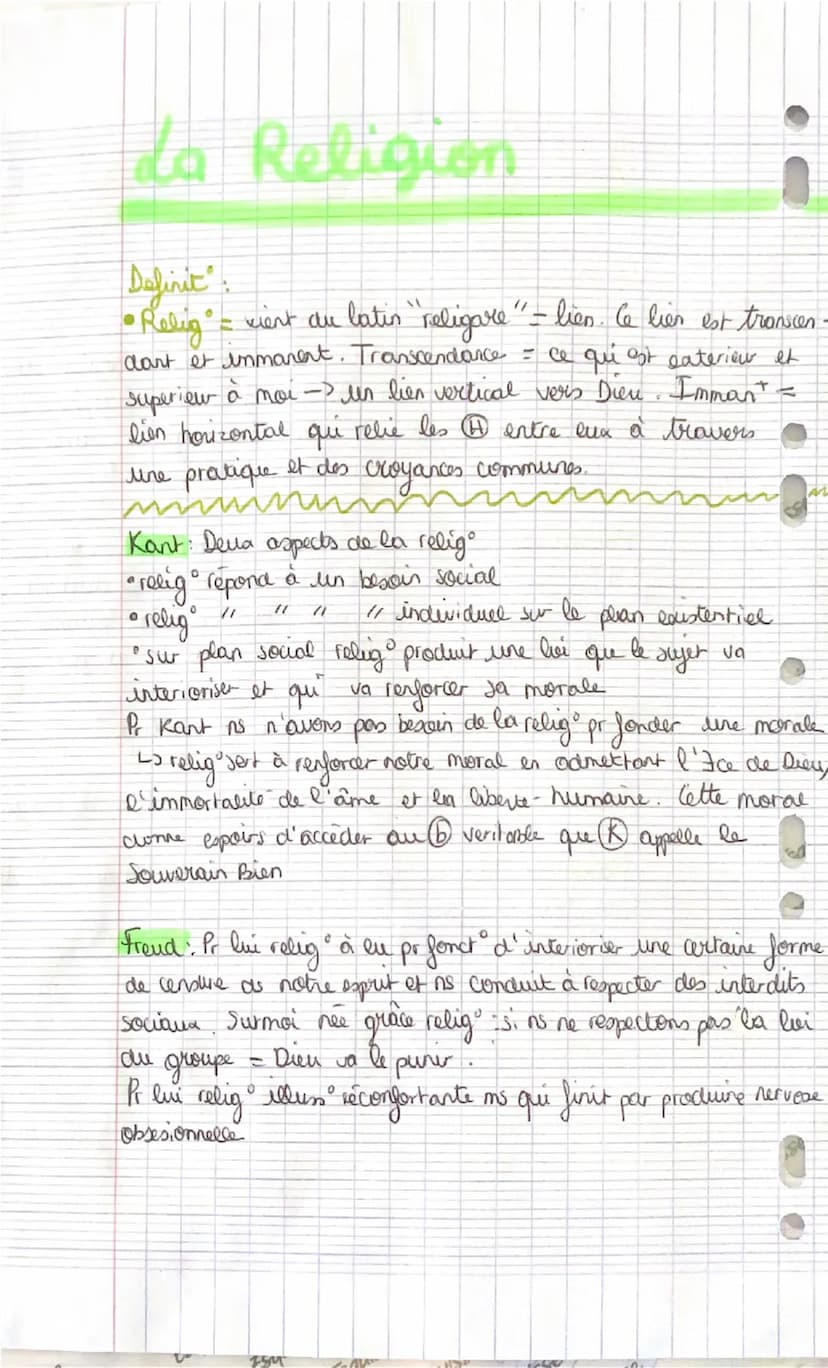 La Religion
Definit° :
• Relig° = vient du latin "religare" = lien. Ce lien est transcen-
dant et immanent. Transcendance = ce qui est exterieur et
superieur à moi -> un lien vertical vers Dieu. Imman^t =
lien horizontal qui relie les Ⓗ entre eux à travers
une pratique et des croyances communes.
Kant : Deux aspects de la relig°
• relig° répond à un besoin social
• relig° " " " " individuel sur le plan existentiel
• sur plan social relig° produit une loi que le sujet va
interioriser et qui va renforcer sa morale
Pr Kant ns n'avons pas besoin de la relig° pr fonder une morale
↳ relig° sert à renforcer notre moral en admettant l'∃ce de Dieu,
l'immortalité de l'âme et la liberte humaine. Cette moral
donne espoirs d'accèder au ⓑ veritable que Ⓚ appelle le
Souverain Bien
Freud : Pr lui relig° à eu pr fonct° d'interioriser une certaine forme
de censure ds notre esprit et ns conduit à respecter des interdits
sociaux. Surmoi née grâce relig° : si ns ne respectons pas la loi
du groupe = Dieu va le punir.
Pr lui relig° illus° réconfortante ms qui finit par produire nervose
obsesionnelle